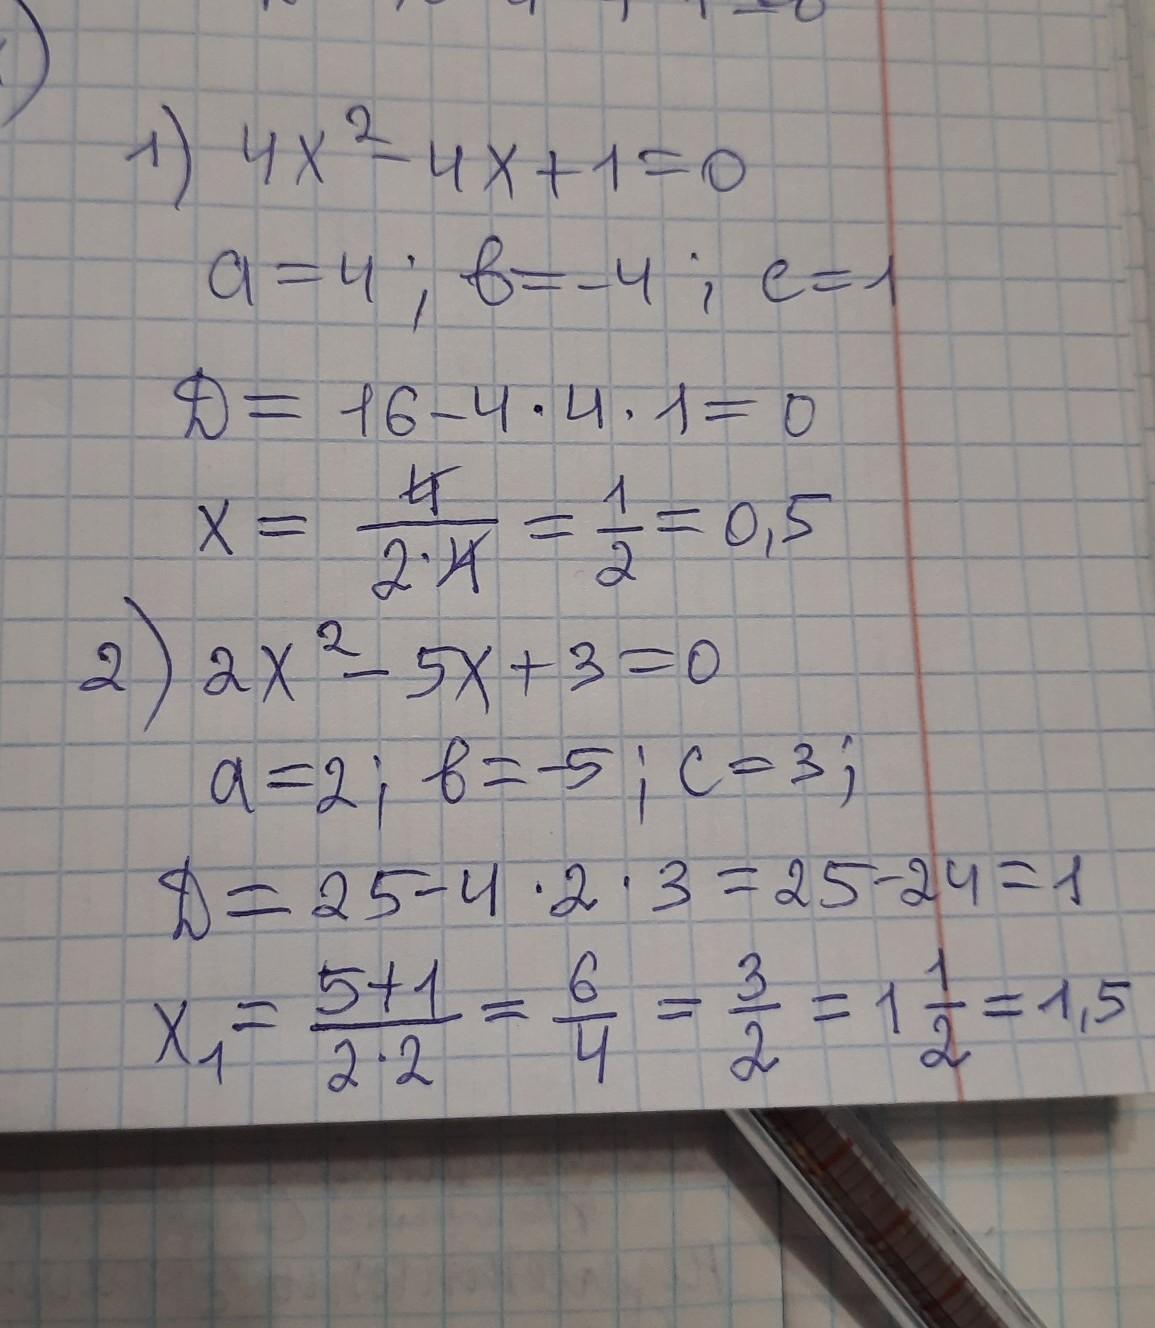 1) 4x² - 4x + 1 = 0
a = 4; в = -4; c = 1
D = 16 - 4 · 4 · 1 = 0
x = 4/(2·4) = 1/2 = 0,5
2) 2x² - 5x + 3 = 0
a = 2; в = -5; c = 3;
D = 25 - 4 · 2 · 3 = 25 - 24 = 1
x₁ = (5+1)/(2·2) = 6/4 = 3/2 = 1 1/2 = 1,5